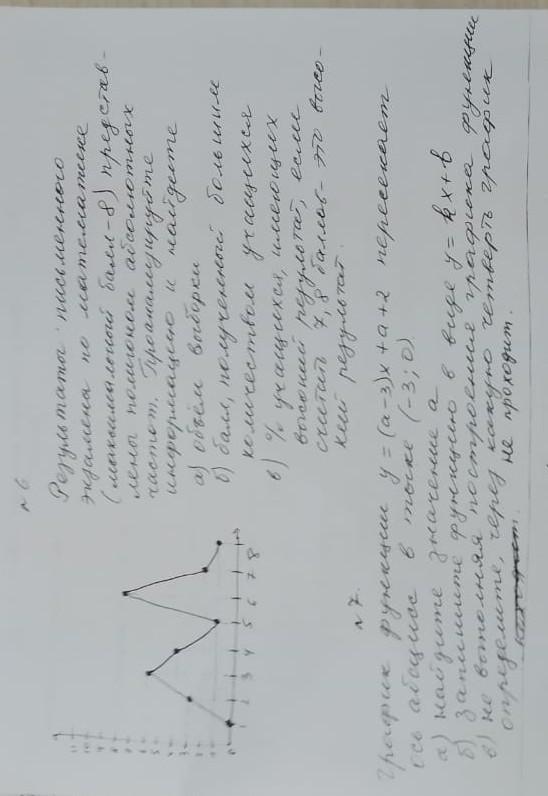 №6
Результаты письменного
экзамена по математике
(максимальный балл-8) представ-
лены полигоном абсолютных
частот. Проанализируйте
информацию и найдите
а) объём выборки
б) балл, полученный большим
количеством учащихся
в) % учащихся, имеющих
высокий результат, если
считать 7, 8 баллов- это высо-
кий результат.
1 2 3 4 5 6 7 8
№7.
График функции y=(a-3)x+a+2 пересекает
ось абсцисс в точке (-3; 0)
а) найдите значение a
б) запишите функцию в виде y=kx+b
в) не выполняя построения графика функции
определите, через какую четверть график
не проходит.